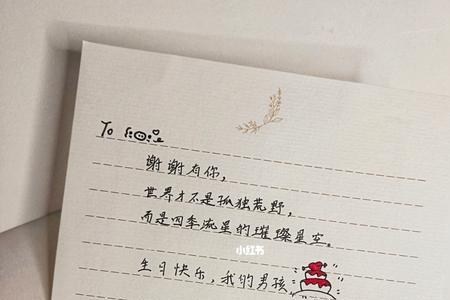 To
谢谢有你，
世界才不是孤独荒野，
而是四季流星的璀璨星空。
小红书
生日快乐，我的男孩